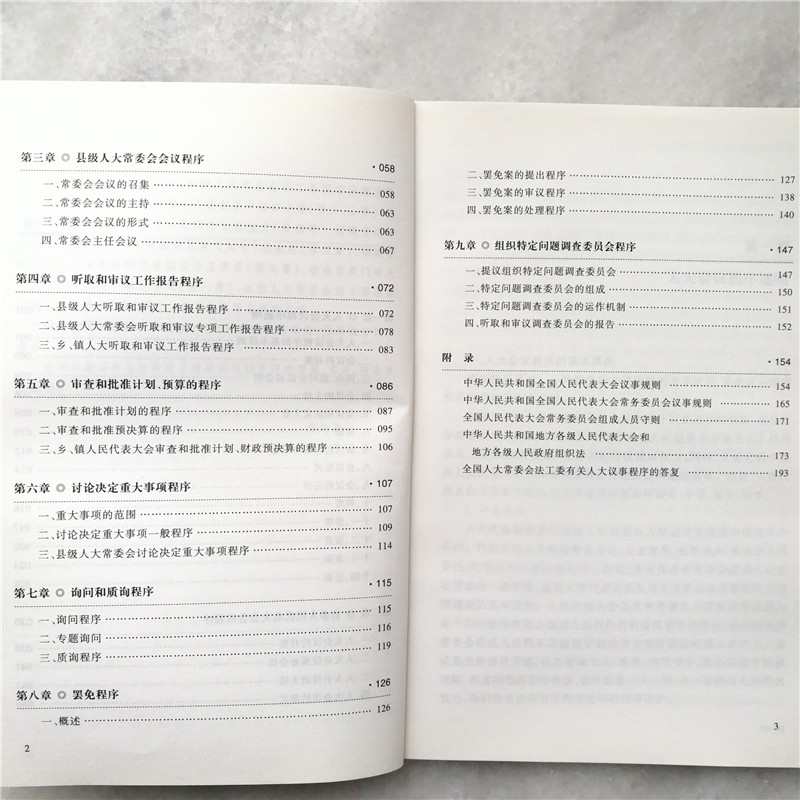 第三章 ◎ 县级人大常委会会议程序 ·058
一、常委会会议的召集 058
二、常委会会议的主持 063
三、常委会会议的形式 063
四、常委会主任会议 067
第四章 ◎ 听取和审议工作报告程序 ·072
一、县级人大听取和审议工作报告程序 072
二、县级人大常委会听取和审议专项工作报告程序 078
三、乡、镇人大听取和审议工作报告程序 083
第五章 ◎ 审查和批准计划、预算的程序 ·086
一、审查和批准计划的程序 087
二、审查和批准预决算的程序 095
三、乡、镇人民代表大会审查和批准计划、财政预决算的程序 106
第六章 ◎ 讨论决定重大事项程序 ·107
一、重大事项的范围 107
二、讨论决定重大事项一般程序 109
三、县级人大常委会讨论决定重大事项程序 114
第七章 ◎ 询问和质询程序 ·115
一、询问程序 115
二、专题询问 116
三、质询程序 119
第八章 ◎ 罢免程序 ·126
一、概述 126
2
二、罢免案的提出程序 127
三、罢免案的审议程序 138
四、罢免案的处理程序 140
第九章 ◎ 组织特定问题调查委员会程序 ·147
一、提议组织特定问题调查委员会 147
二、特定问题调查委员会的组成 150
三、特定问题调查委员会的运作机制 151
四、听取和审议调查委员会的报告 152
附 录 ·154
中华人民共和国全国人民代表大会议事规则 154
中华人民共和国全国人民代表大会常务委员会议事规则 165
全国人民代表大会常务委员会组成人员守则 171
中华人民共和国地方各级人民代表大会和
地方各级人民政府组织法 173
全国人大常委会法工委有关人大议事程序的答复 193
3